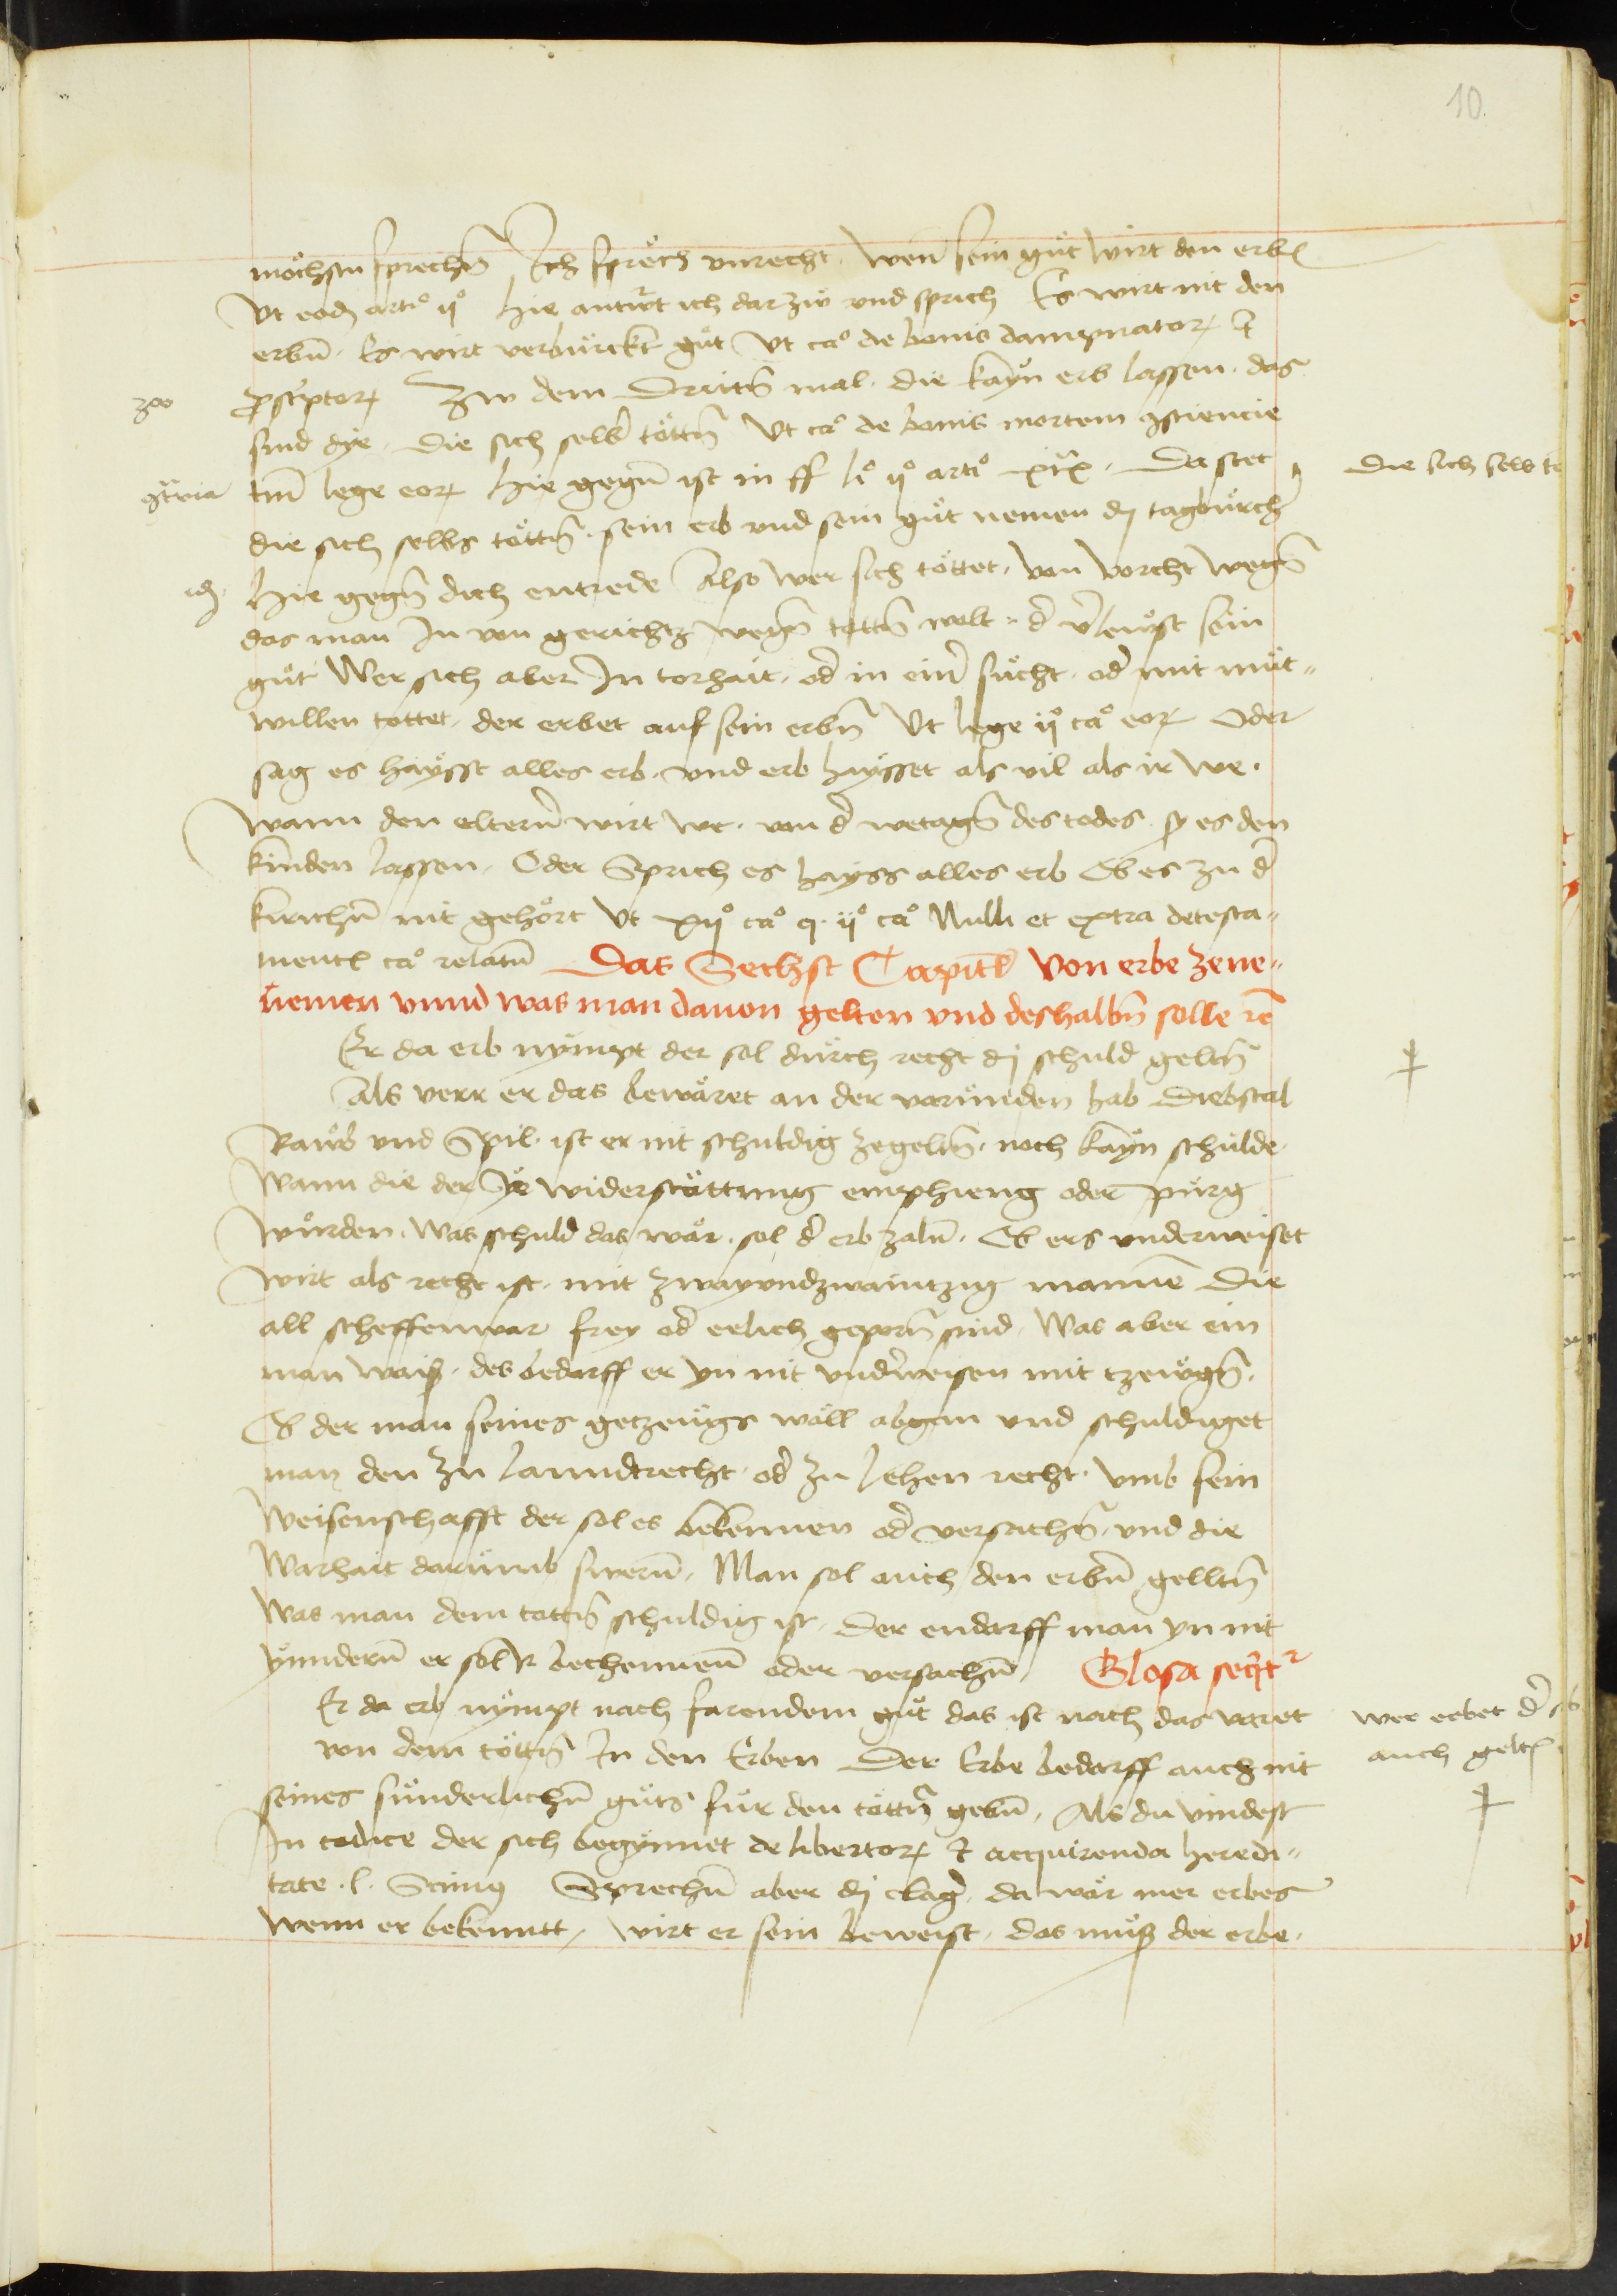 10.
möchstu sprechñ Ich spräch vnrecht. Wen̄ sein gůt wirt den erbñ
Vt eod artᵒ ijᵒ hie antw̃t ich dar zw̆ vnd sprich Es wirt nit den
erbñ. Es wirt verbürckt gůt Vt caᵒ de bonis dampnatoꝝ et
ꝓscͥptoꝝ Zw dem Dritt̃n mal. die kaÿn erb lassen. das
3ᵒᵒ
sind dÿe. die sich selb̃ töttñ Vt caᵒ de bonis mortem ꝯsciencie
ꝯt̃ria
tm̃ lege eoꝝ hie gegñ ist in ff liᵒ ijᵒ artᵒ xix. Da stet
Die sich selb
die sich selbs töttñ. sein erb vnd sein gůt nemen dj tagbürch̃
hie gegñ dich entrede Also wer sich töttet. von vorcht wegñ
das man In von gerichtz wegñ tottñ wolt. d̃ v̉leust sein
gůt Wer sich aber In torhait. od̃ in ein̉ sücht. od̃ mit můt-
willen tottet. der erbet auf sein erbñ Vt lege ijᵒ caᵒ eoꝝ Oder
sag es haÿsst alles erb. vnd erb haÿsset als vil als ir we.
Wann den eltern̄ wirt we. von d̃ wetagñ des todes. sy es den
kinden lassen. Oder Sprich es hayss alles erb Ob es zu d̃
kirichñ nit gehört Vt xijᵒ caᵒ q. ijᵒ caᵒ Nulli et extra de testa-
mentꝭ caᵒ relatū Das Sechst Capitl̃ Von erbe zene-
nemen vnnd was man dauon gelten vnd deshalbñ solle rc̃
Er da erb nÿmpt der sol dürch recht dj schuld geltñ
Als verr er das bewäret an der varünden hab Diebstal
Raŵb vnd Spil. ist er nit schuldig zegeltñ. noch kaÿn schülde.
Wann die der ye widerstattung emphieng oder pürg
würden. Was schuld das wär. sol d̃ erb zalñ. Ob ers vnderweiset
wirt als recht ist. mit zwayvndzwaintzig mannē Die
all scheffenwar frey od̃ erlich geporñ sind. Was aber ein
man waiß. des bedarff er yn nit vnd̃weisen mit tzeügñ.
Ob der man seines getzeügs wöll abgen vnd schuldiget
man den zu lanndtrecht. od̃ zu lehen recht. vmb sein
Weisenschafft der sol es bekennen od̃ versachñ. vnd die
Warhait darümb swerñ. Man sol auch den erbñ gelltñ
Was man dem tottñ schuldig ist. Der endarff man yn nit
ynnderñ er sol es bechennenñ oder versachñ. Glosa seqͥtᵘ
Er da erb nÿmpt nach farendem gůt das ist nach das varet
wer erbet d̃
von dem töttñ In den Erben Der Erbe bedarff auch nit
auch geltꝭ
seines sünderlichñ gůts für den töttñ gebñ. Als du vindest
In codice der sich begÿnnet de libertoꝝ et acquirenda heredi-
tate. l. Scimꝯ Sprechñ aber dj clag̃. da wär mer erbes
wenn er bekenntt, wirt er sein beweist. das můß der erbe.